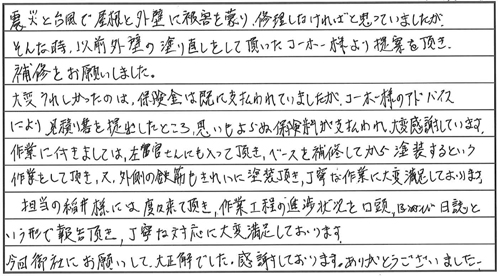 震災と台風で屋根と外壁に被害を蒙り、修理しなければと思っていましたが、
そんな時、以前外壁の塗り直しをして頂いたコーホー様より提案を頂き、
補修をお願いしました。
大変うれしかったのは、保険金は既に支払われていましたが、コーホー様のアドバイス
により見積り書を提出したところ、思いもよらぬ保険料が支払われ、大変感謝しています。
作業に付きましては、左官官さんにも入って頂き、ベースを補修してから塗装するという
作業をして頂き、又、外側の鉄筋もきれいに塗装頂き、丁寧な作業に大変満足しております。
担当の 井様には度々来て頂き、作業工程の進渉状況を口頭、 日誌と
いう形で報告頂き、丁寧な対応に大変満足しております。
今回御社にお願いして、大正解でした。感謝しております。ありがとうございました。